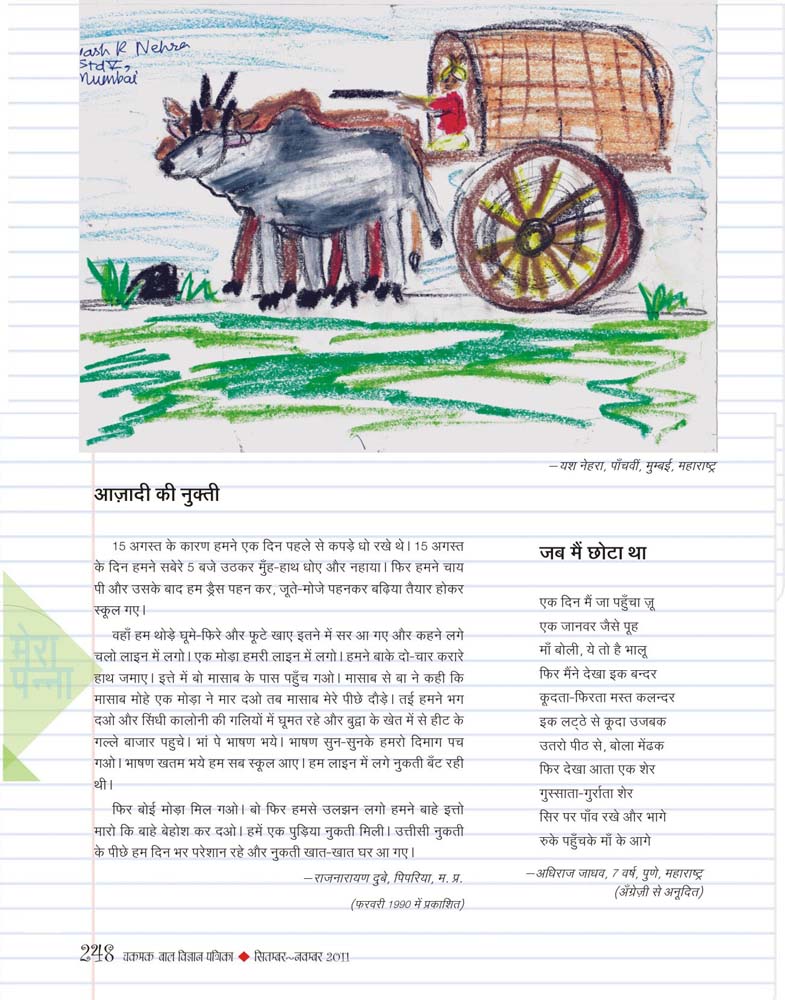 yash R Nehra
Std V,
Mumbai
—यश नेहरा, पाँचवीं, मुम्बई, महाराष्ट्र
आज़ादी की नुक्ती
15 अगस्त के कारण हमने एक दिन पहले से कपड़े धो रखे थे। 15 अगस्त
के दिन हमने सबेरे 5 बजे उठकर मुँह-हाथ धोए और नहाया। फिर हमने चाय
पी और उसके बाद हम ड्रैस पहन कर, जूते-मोजे पहनकर बढ़िया तैयार होकर
स्कूल गए।
वहाँ हम थोड़े घूमे-फिरे और फूटे खाए इतने में सर आ गए और कहने लगे
चलो लाइन में लगो। एक मोड़ा हमरी लाइन में लगो। हमने बाके दो-चार करारे
हाथ जमाए। इत्ते में बो मासाब के पास पहुँच गओ। मासाब से बा ने कही कि
मासाब मोहे एक मोड़ा ने मार दओ तब मासाब मेरे पीछे दौड़े। तई हमने भग
दओ और सिंधी कालोनी की गलियों में घूमत रहे और बुद्वा के खेत में से हीट के
गल्ले बाजार पहुचे। भां पे भाषण भये। भाषण सुन-सुनके हमरो दिमाग पच
गओ। भाषण खतम भये हम सब स्कूल आए। हम लाइन में लगे नुकती बँट रही
थी।
फिर बोई मोड़ा मिल गओ। बो फिर हमसे उलझन लगो हमने बाहे इत्तो
मारो कि बाहे बेहोश कर दओ। हमें एक पुड़िया नुकती मिली। उत्तीसी नुकती
के पीछे हम दिन भर परेशान रहे और नुकती खात-खात घर आ गए।
—राजनारायण दुबे, पिपरिया, म. प्र.
(फरवरी 1990 में प्रकाशित)
जब मैं छोटा था
एक दिन मैं जा पहुँचा ज़ू
एक जानवर जैसे पूह
माँ बोली, ये तो है भालू
फिर मैंने देखा इक बन्दर
कूदता-फिरता मस्त कलन्दर
इक लट्ठे से कूदा उजबक
उतरो पीठ से, बोला मेंढक
फिर देखा आता एक शेर
गुस्साता-गुर्राता शेर
सिर पर पाँव रखे और भागे
रुके पहुँचके माँ के आगे
—अधिराज जाधव, 7 वर्ष, पुणे, महाराष्ट्र
(अँग्रेज़ी से अनूदित)
मेरा
पन्ना
248 चकमक बाल विज्ञान पत्रिका ◆ सितम्बर-नवम्बर 2011